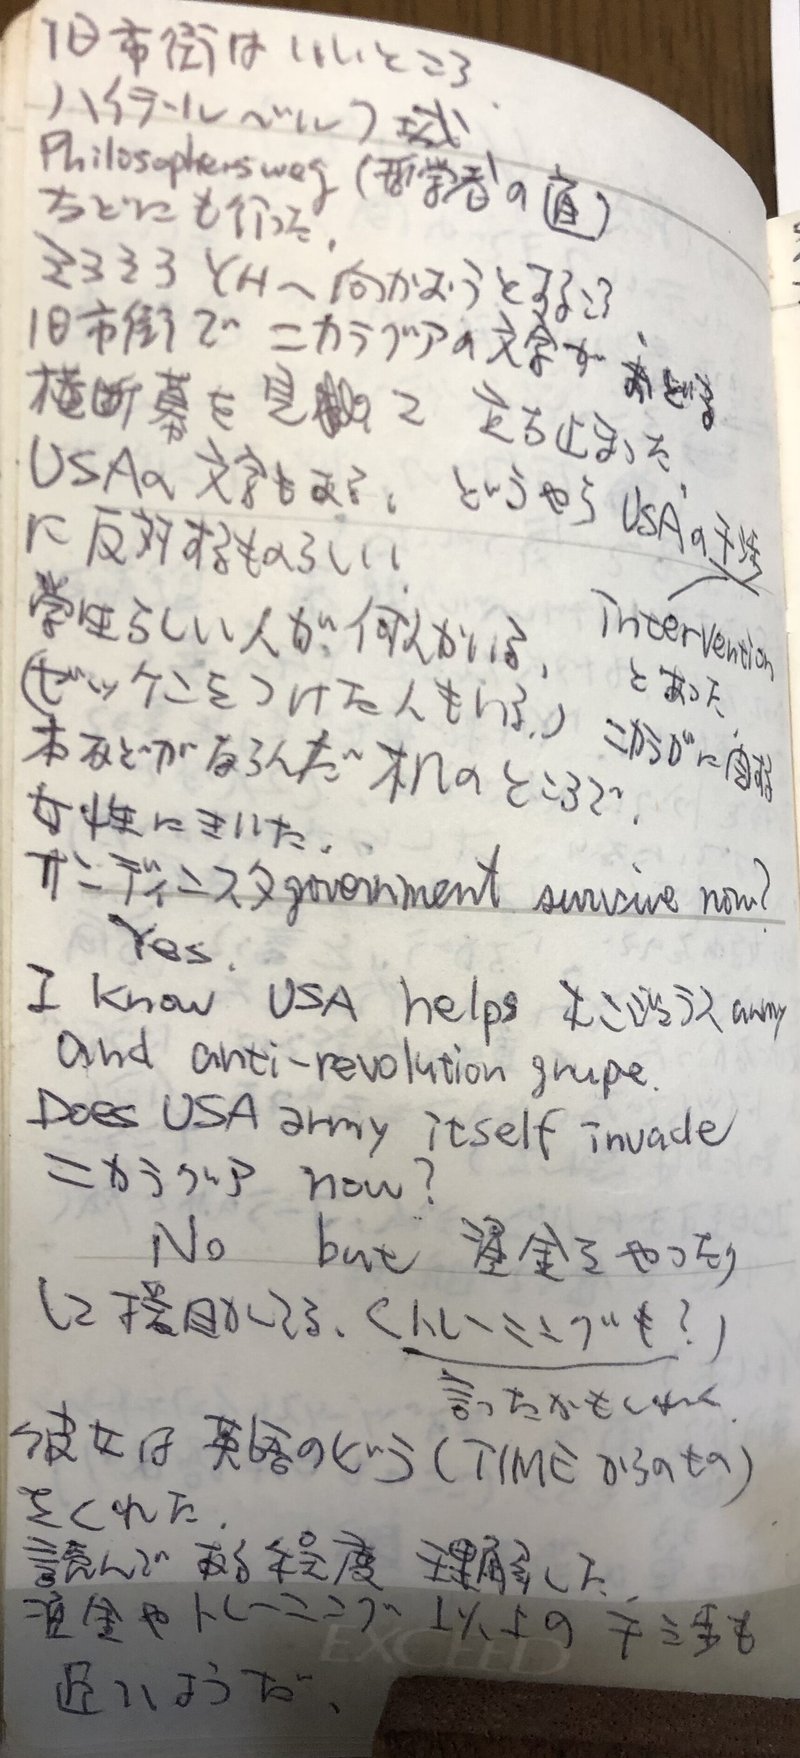 旧市街はいいところ.
ハイデールベルク城
Philosophersweg (哲学者の道)
などにも行った.
そろそろYHへ向かおうとするころ
旧市街でニカラグアの文字がおどる
横断幕を見 て 立ち止まった.
USAの文字もある. どうやら USAの干渉
に反対するものらしい.
intervention
とあった.
学生らしい人が何人かいる.
(ゼッケンをつけた人もいる.)
本などがならんだ机のところで.
女性にきいた.
サンディニスタgovernment survive now?
Yes.
I know USA helps ホンジュラス army
and anti-revolution grupe.
Does USA army itself invade
ニカラグア now?
No but 資金をやったり
して援助してる. (トレーニングも?)
言ったかもしれない.
彼女は英語のビラ (TIMEからのもの)
をくれた.
読んである程度理解した.
資金やトレーニング以上の干渉も
近いようだ.
EXCEED